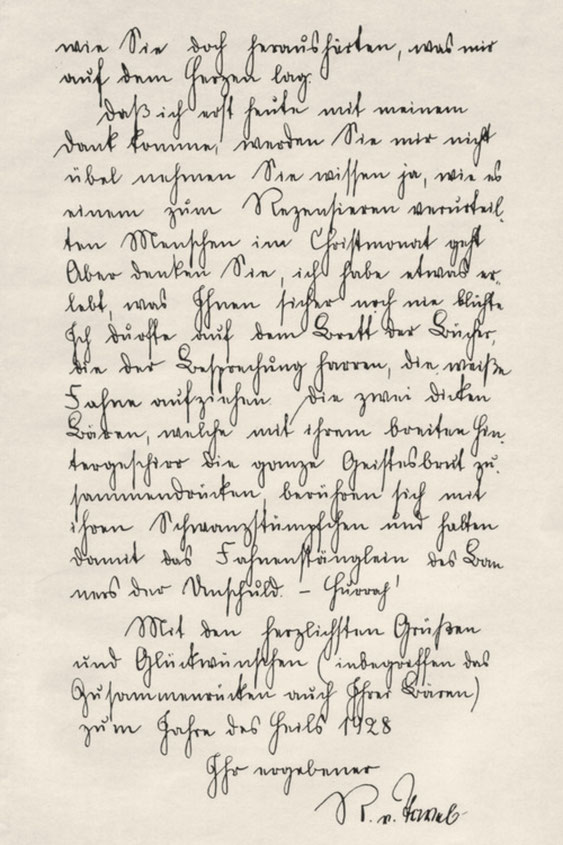 wie Sie doch heraushörten, was mir
auf dem Herzen lag.
Daß ich erst heute mit meinem
Dank komme, werden Sie mir nicht
übel nehmen Sie wissen ja, wie es
einem zum Rezensieren verurteil-
ten Menschen im Christmonat geht
Aber denken Sie, ich habe etwas er-
lebt, was Ihnen sicher noch nie blühte
Ich durfte auf dem Brett der Bücher,
die der Besprechung harren, die weiße
Fahne aufziehen Die zwei dicken
Bären, welche mit ihrem breiten Hin-
tergeschirr die ganze Geistesbrut zu-
sammendrücken, berühren sich mit
ihren Schwanzstümpfchen und halten
damit das Fahnenstänglein des Ban
ners der Unschuld. – Hurrah!
Mit den herzlichsten Grüßen
und Glückwünschen (inbegriffen das
Zusammenrücken auch Ihrer Bären)
zum Jahre des Heils 1928
Ihr ergebener
R. v. Tavel